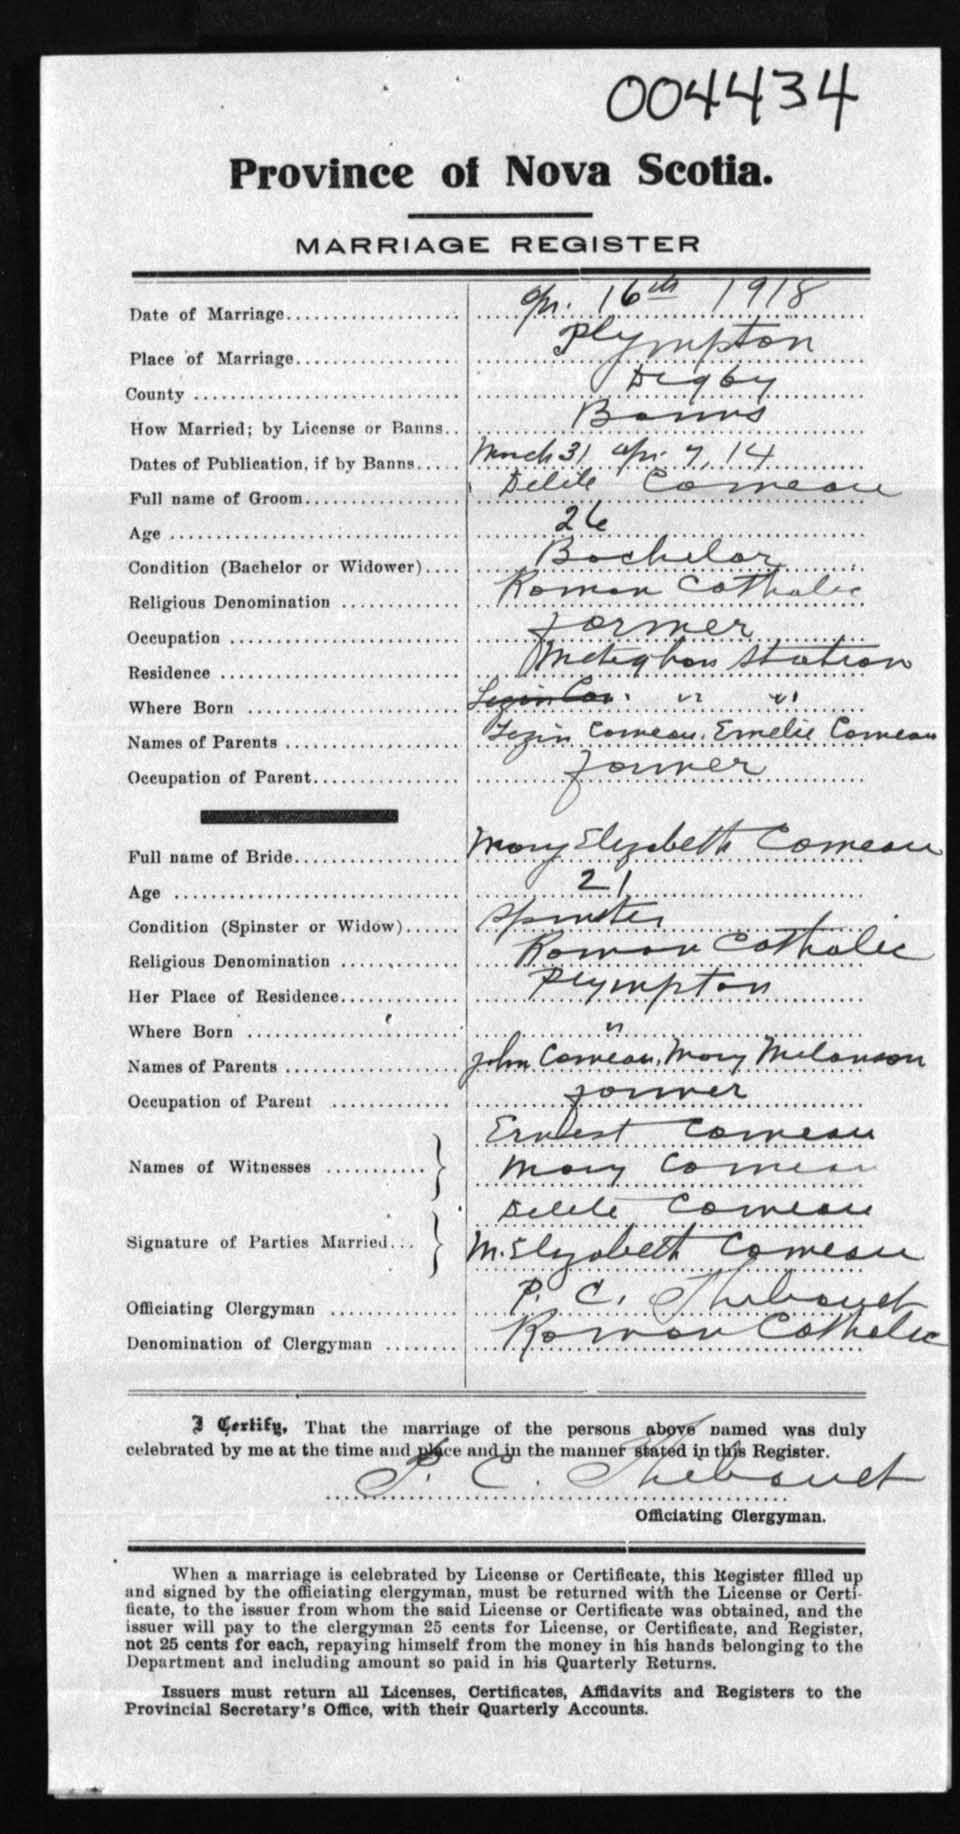 004434
Province of Nova Scotia.
MARRIAGE REGISTER
Date of Marriage Apr. 16th 1918
Place of Marriage Plympton
County Digby
How Married; by License or Banns Banns
Dates of Publication, if by Banns March 31, Apr. 7, 14
Full name of Groom Delile Comeau
Age 26
Condition (Bachelor or Widower) Bachelor
Religious Denomination Roman Catholic
Occupation Farmer
Residence Meteghan Station
Where Born " "
Names of Parents Comeau, Emelie Comeau
Occupation of Parent Farmer
Full name of Bride Mary Elizabeth Comeau
Age 21
Condition (Spinster or Widow) Spinster
Religious Denomination Roman Catholic
Her Place of Residence Plympton
Where Born "
Names of Parents John Comeau, Mary Melanson
Occupation of Parent Farmer
Ernest Comeau
Names of Witnesses Mary Comeau
Delile Comeau
Signature of Parties Married M. Elizabeth Comeau
Officiating Clergyman P. C. Thebault
Denomination of Clergyman Roman Catholic
I Certify, That the marriage of the persons above named was duly
celebrated by me at the time and place and in the manner stated in this Register.
P. C. Thebault
Officiating Clergyman.
When a marriage is celebrated by License or Certificate, this Register filled up
and signed by the officiating clergyman, must be returned with the License or Certi-
ficate, to the issuer from whom the said License or Certificate was obtained, and the
issuer will pay to the clergyman 25 cents for License, or Certificate, and Register,
not 25 cents for each, repaying himself from the money in his hands belonging to the
Department and including amount so paid in his Quarterly Returns.
Issuers must return all Licenses, Certificates, Affidavits and Registers to the
Provincial Secretary's Office, with their Quarterly Accounts.